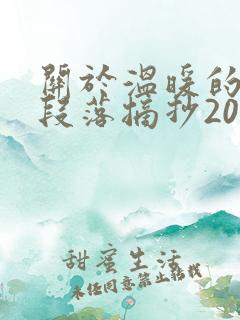 關於溫暖的
段落摘抄20
甜蜜生活
未經同意禁止轉載